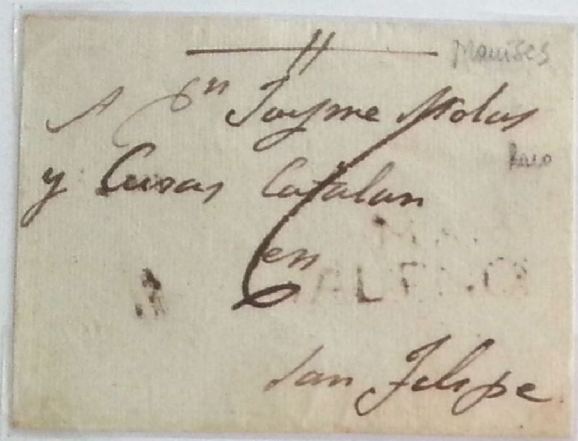 Manises
A Dn Jayme Molas
Raro
y Casas Catalan
en
San Felipe